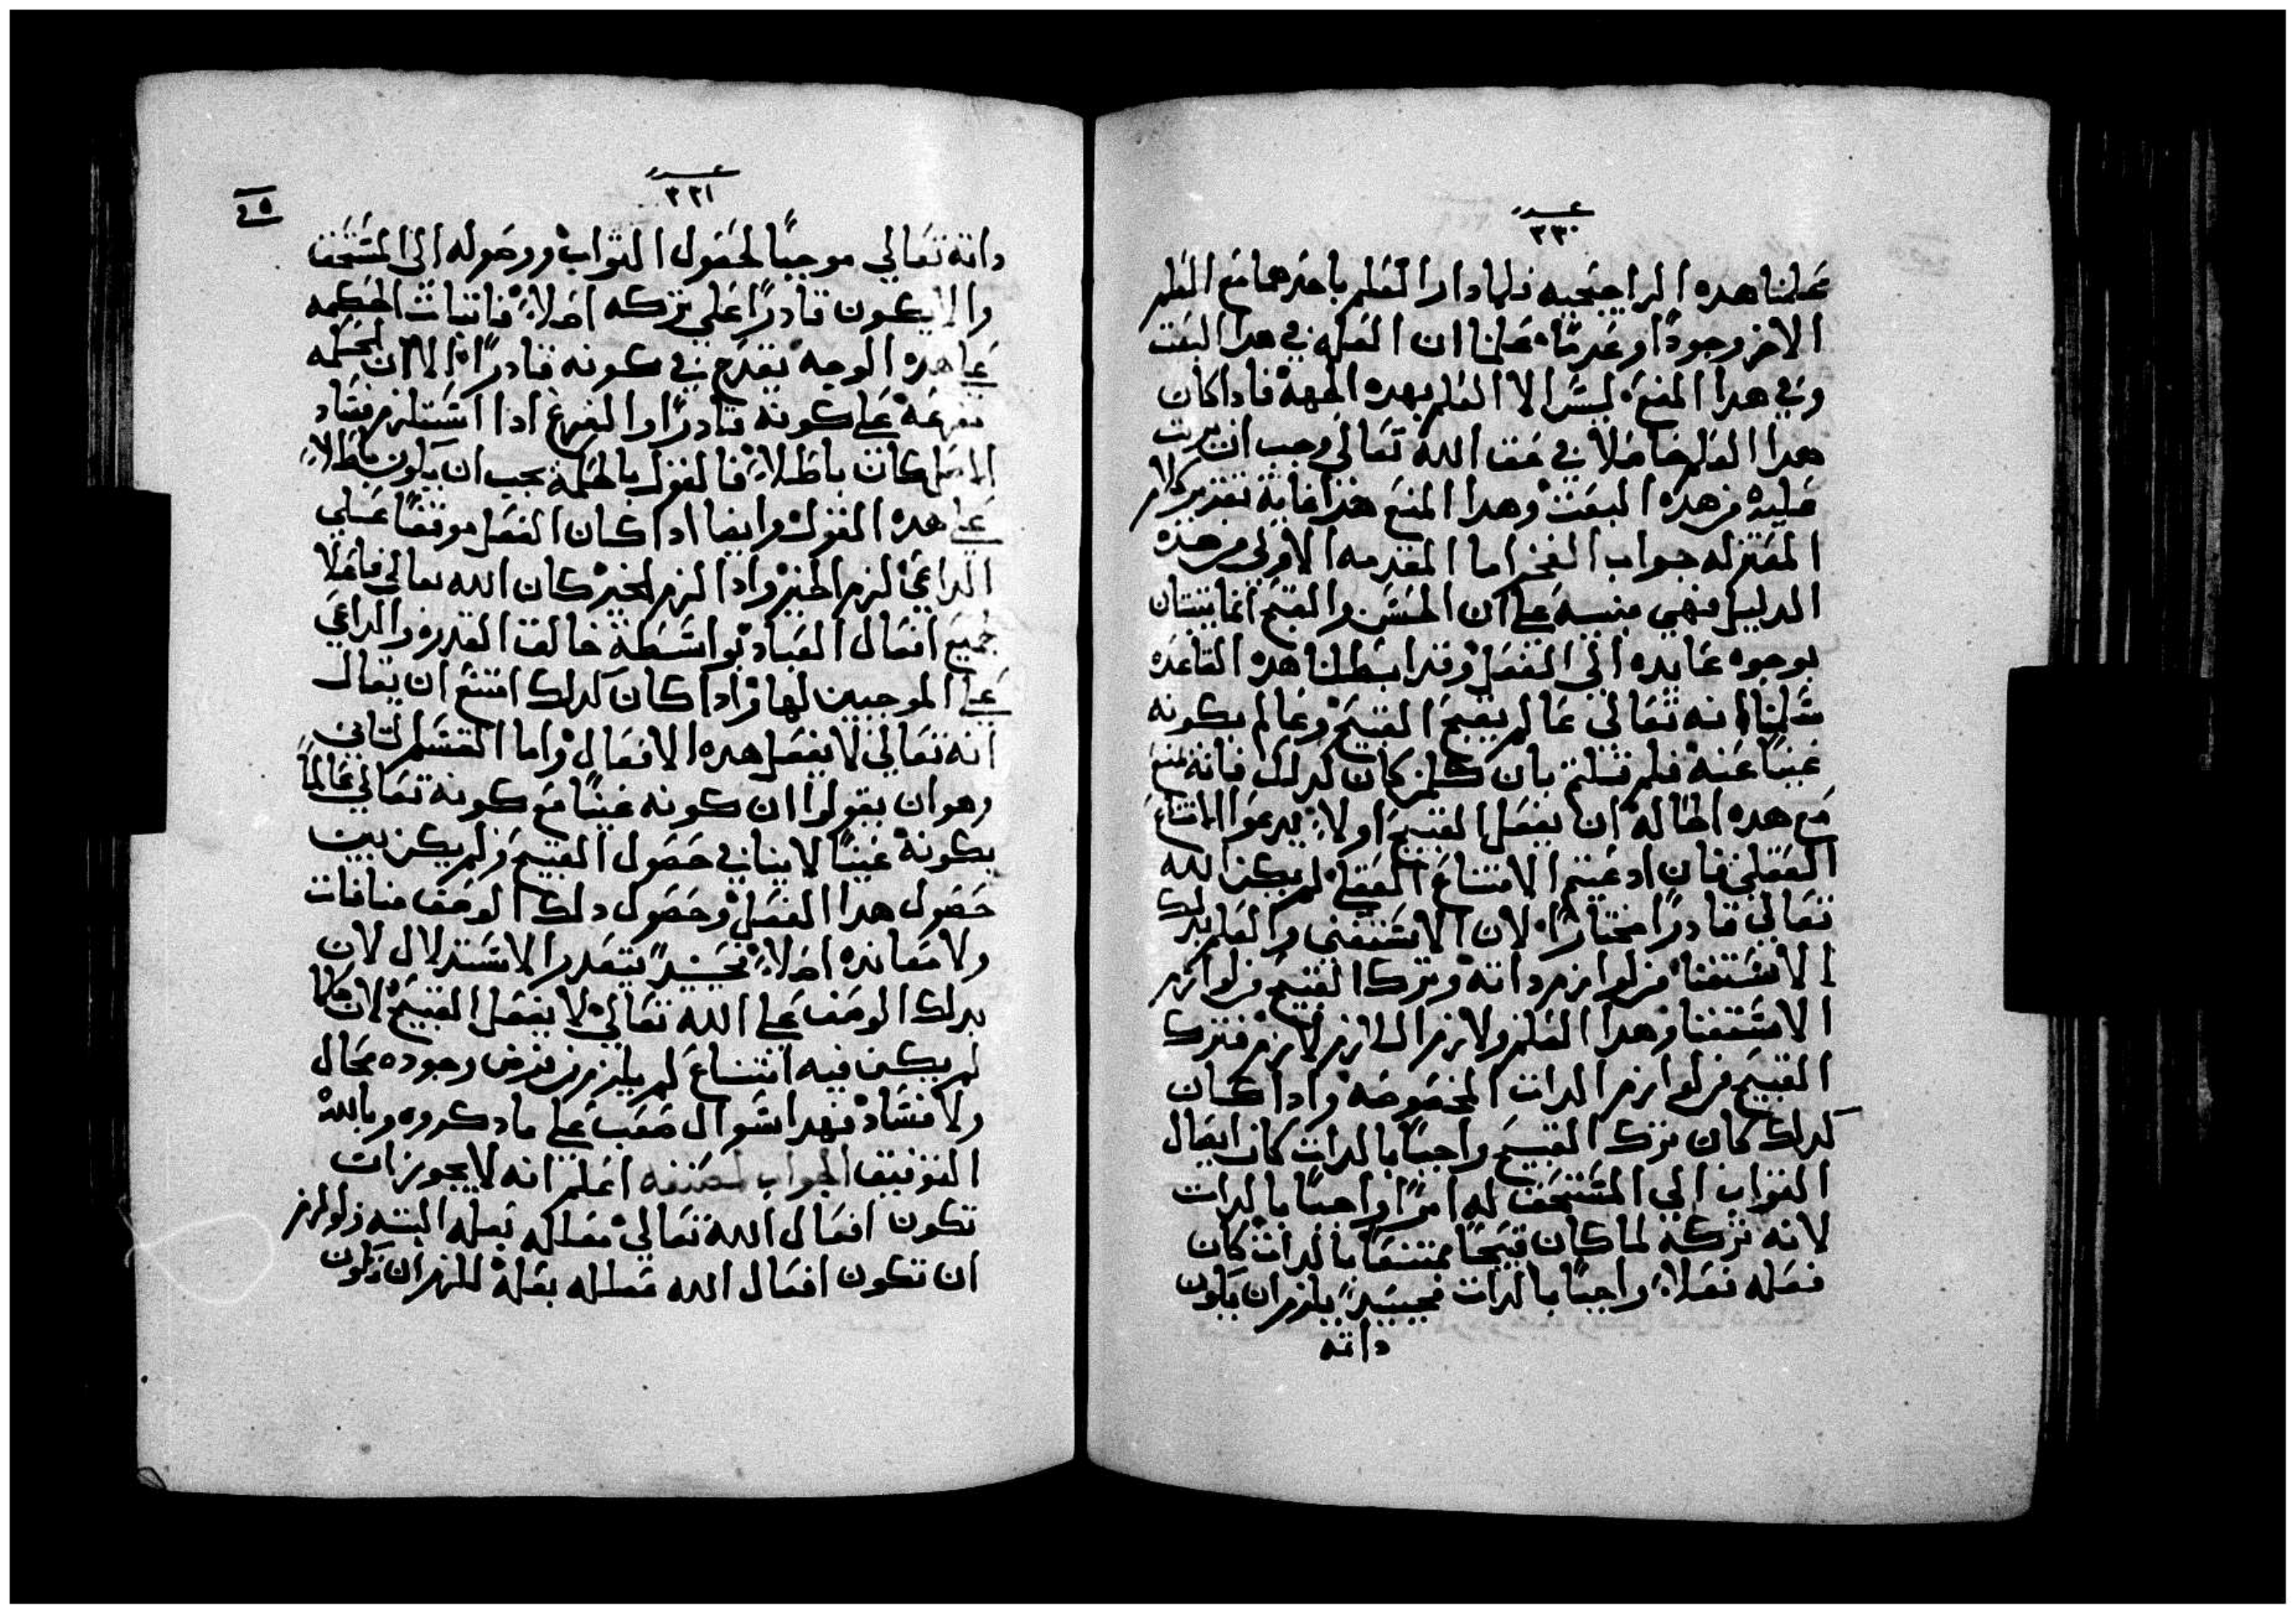 عدد
٢٣٠
علمنا هده الراحجيه فلما دار العلم باحدهما مع العلم
الاخر وجودًا وعدمًا علمنا ان العله في هدا البعت
وفي هدا المنع ليس الا العلم بهده الجهة فاداكان
هدا العلم حاصلا في حق الله تعالي وجب ان يرتب
عليه هده البعت وهدا المنع هدا غاية تقرير كلام
المعتزله جواب الفخر اما المقدمه الاولي من هده
الدليل فهي مبنيه علي ان الحسن والقبح انما يثبتان
بوجوه عايده الي الفعل وقد ابطلنا هده القاعده
سلمنا انه تعالي عالم بقبح القبيح وعالم بكونه
غنيًا عنه فلم قلتم بان كلمن كان كدلك فانه يمتنع
مع هده الحاله ان يفعل القبيح اولا يدعوا الامتناع
العقلي فان ادعيتم الامتناع العقلي لم يكن الله
تعالي قادرًا مختارًا لان الاستغني والعلم بدلك
الاستغنا من لوازم داته وترك القبيح من لوازم
الاستغنا وهدا العلم ولازم اللازم لازم فترك
القبيح من لوازم الدات المخصوصه وادا كان
كدلك كان ترك القبيح واجبًا بالدات كان ايصال
التواب الي المستحق له امرًا واجبًا بالدات
لانه تركه لما كان قبيحًا ممتنعًا بالدات كان
فعله فعلاً واجبًا بالدات فحينيدٍ يلزم ان يكون
داته
عدد
٢٣١
٤٥
داته تعالي موجبًا لحصول التواب ووصوله الي المستحق
والا يكون قادرًا علي تركه اصلاً فاتبات الحكمه
علي هده الوجه يقدح في كونه قادرًا الا ان الحكمه
متفرعة علي كونه قادرًا والفرع ادا استلزم فساد
الاصل كان باطلاً فالقول بالحكمة يجب ان يكون باطلاً
علي هده القول وايضا ادا كان الفعل موقفًا علي
الداعي لزم الجبر وادا لزم الجبر كان الله تعالي فاعلا
لجميع افعال العباد بواسطة خالق القدره والداعي
علي الموجبين لها وادا كان كدلك امتنع ان يقال
انه تعالي لا يفعل هده الافعال واما القسم التاني
وهو ان يقولوا ان كونه غنيًا مع كونه تعالي عالمًا
بكونه غنيًا لا ينافي حصول القبيح ولم يكن بين
حصول هدا الفعل وحصول دلك الوصف منافات
ولا معانده اصلاً فحينيدٍ يتعدر الاستدلال لان
بدلك الوصف علي الله تعالي لا يفعل القبيح لان كلما
لم يكن فيه امتناع لم يلزم من فرض وجوده محال
ولا فساد فهدا سوال صعب علي ما دكروه وبالله
التوفيق الجواب لمصنفه اعلم انه لا يجوز ان
تكون افعال الله تعالي معلله بعله البته
ان تكون افعال الله معلله بعلة للزم ان تكون